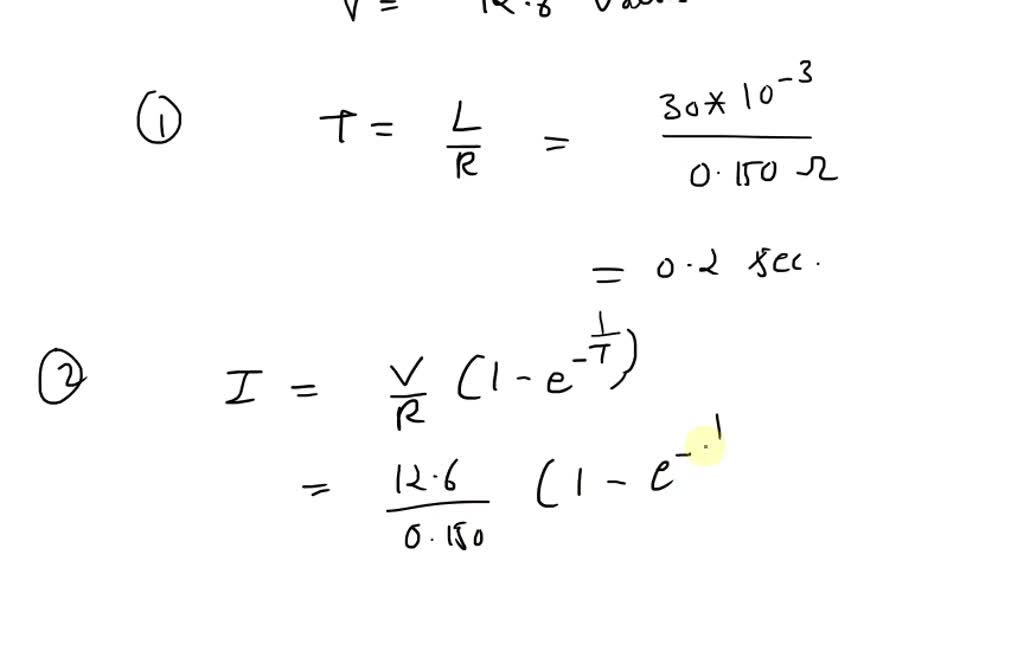 V =
① T = L/R = 30*10⁻³/0.150 Ω
= 0.2 sec.
② I = V/R (1-e^-1/T)
= 12.6/0.150 (1-e^-1